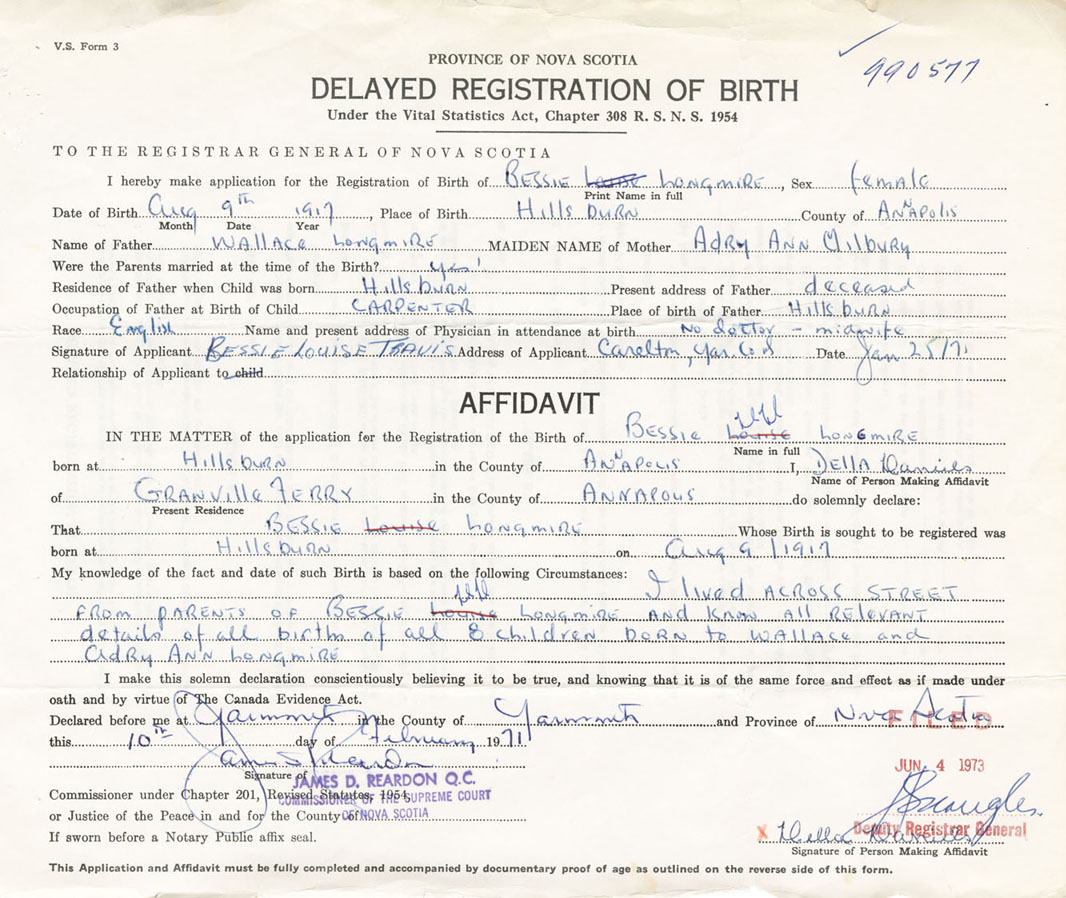 V.S. Form 3
990577
PROVINCE OF NOVA SCOTIA
DELAYED REGISTRATION OF BIRTH
Under the Vital Statistics Act, Chapter 308 R. S. N. S. 1954
TO THE REGISTRAR GENERAL OF NOVA SCOTIA
I hereby make application for the Registration of Birth of BESSIE Louise LONGMIRE, Sex female
Print Name in full
Date of Birth Aug 9th 1917, Place of Birth Hillsburn County of ANNAPOLIS
Month Date Year
Name of Father WALLACE LONGMIRE MAIDEN NAME of Mother Adry Ann Milbury
Were the Parents married at the time of the Birth? yes
Residence of Father when Child was born Hillsburn Present address of Father deceased
Occupation of Father at Birth of Child CARPENTER Place of birth of Father Hillsburn
Race English Name and present address of Physician in attendance at birth No doctor - midwife
Signature of Applicant BESSIE LOUISE TRAVIS Address of Applicant Carelton, Yar Co Date Jan 25/71
Relationship of Applicant to child
AFFIDAVIT
IN THE MATTER of the application for the Registration of the Birth of BESSIE Louise LONGMIRE
Name in full
born at Hillsburn in the County of ANNAPOLIS I, DELLA Daniels
Name of Person Making Affidavit
of GRANVILLE FERRY in the County of ANNAPOLIS do solemnly declare:
Present Residence
That BESSIE Louise LONGMIRE Whose Birth is sought to be registered was
born at Hillsburn on Aug 9/1917
My knowledge of the fact and date of such Birth is based on the following Circumstances:
I lived ACROSS STREET
FROM PARENTS OF BESSIE Louise LONGMIRE AND KNOW All RELEVANT
details of all births of all 8 children born to WALLACE and
Adry Ann LONGMIRE
I make this solemn declaration conscientiously believing it to be true, and knowing that it is of the same force and effect as if made under
oath and by virtue of The Canada Evidence Act.
Declared before me at Yarmouth in the County of Yarmouth and Province of Nova Scotia
FILED
this 10th day of February 1971
JUN 4 1973
Signature of
JAMES D. REARDON Q.C.
COMMISSIONER OF THE SUPREME COURT
OF NOVA SCOTIA
Commissioner under Chapter 201, Revised Statutes, 1954
or Justice of the Peace in and for the County of
If sworn before a Notary Public affix seal.
Deputy Registrar General
X Della Daniels
Signature of Person Making Affidavit
This Application and Affidavit must be fully completed and accompanied by documentary proof of age as outlined on the reverse side of this form.